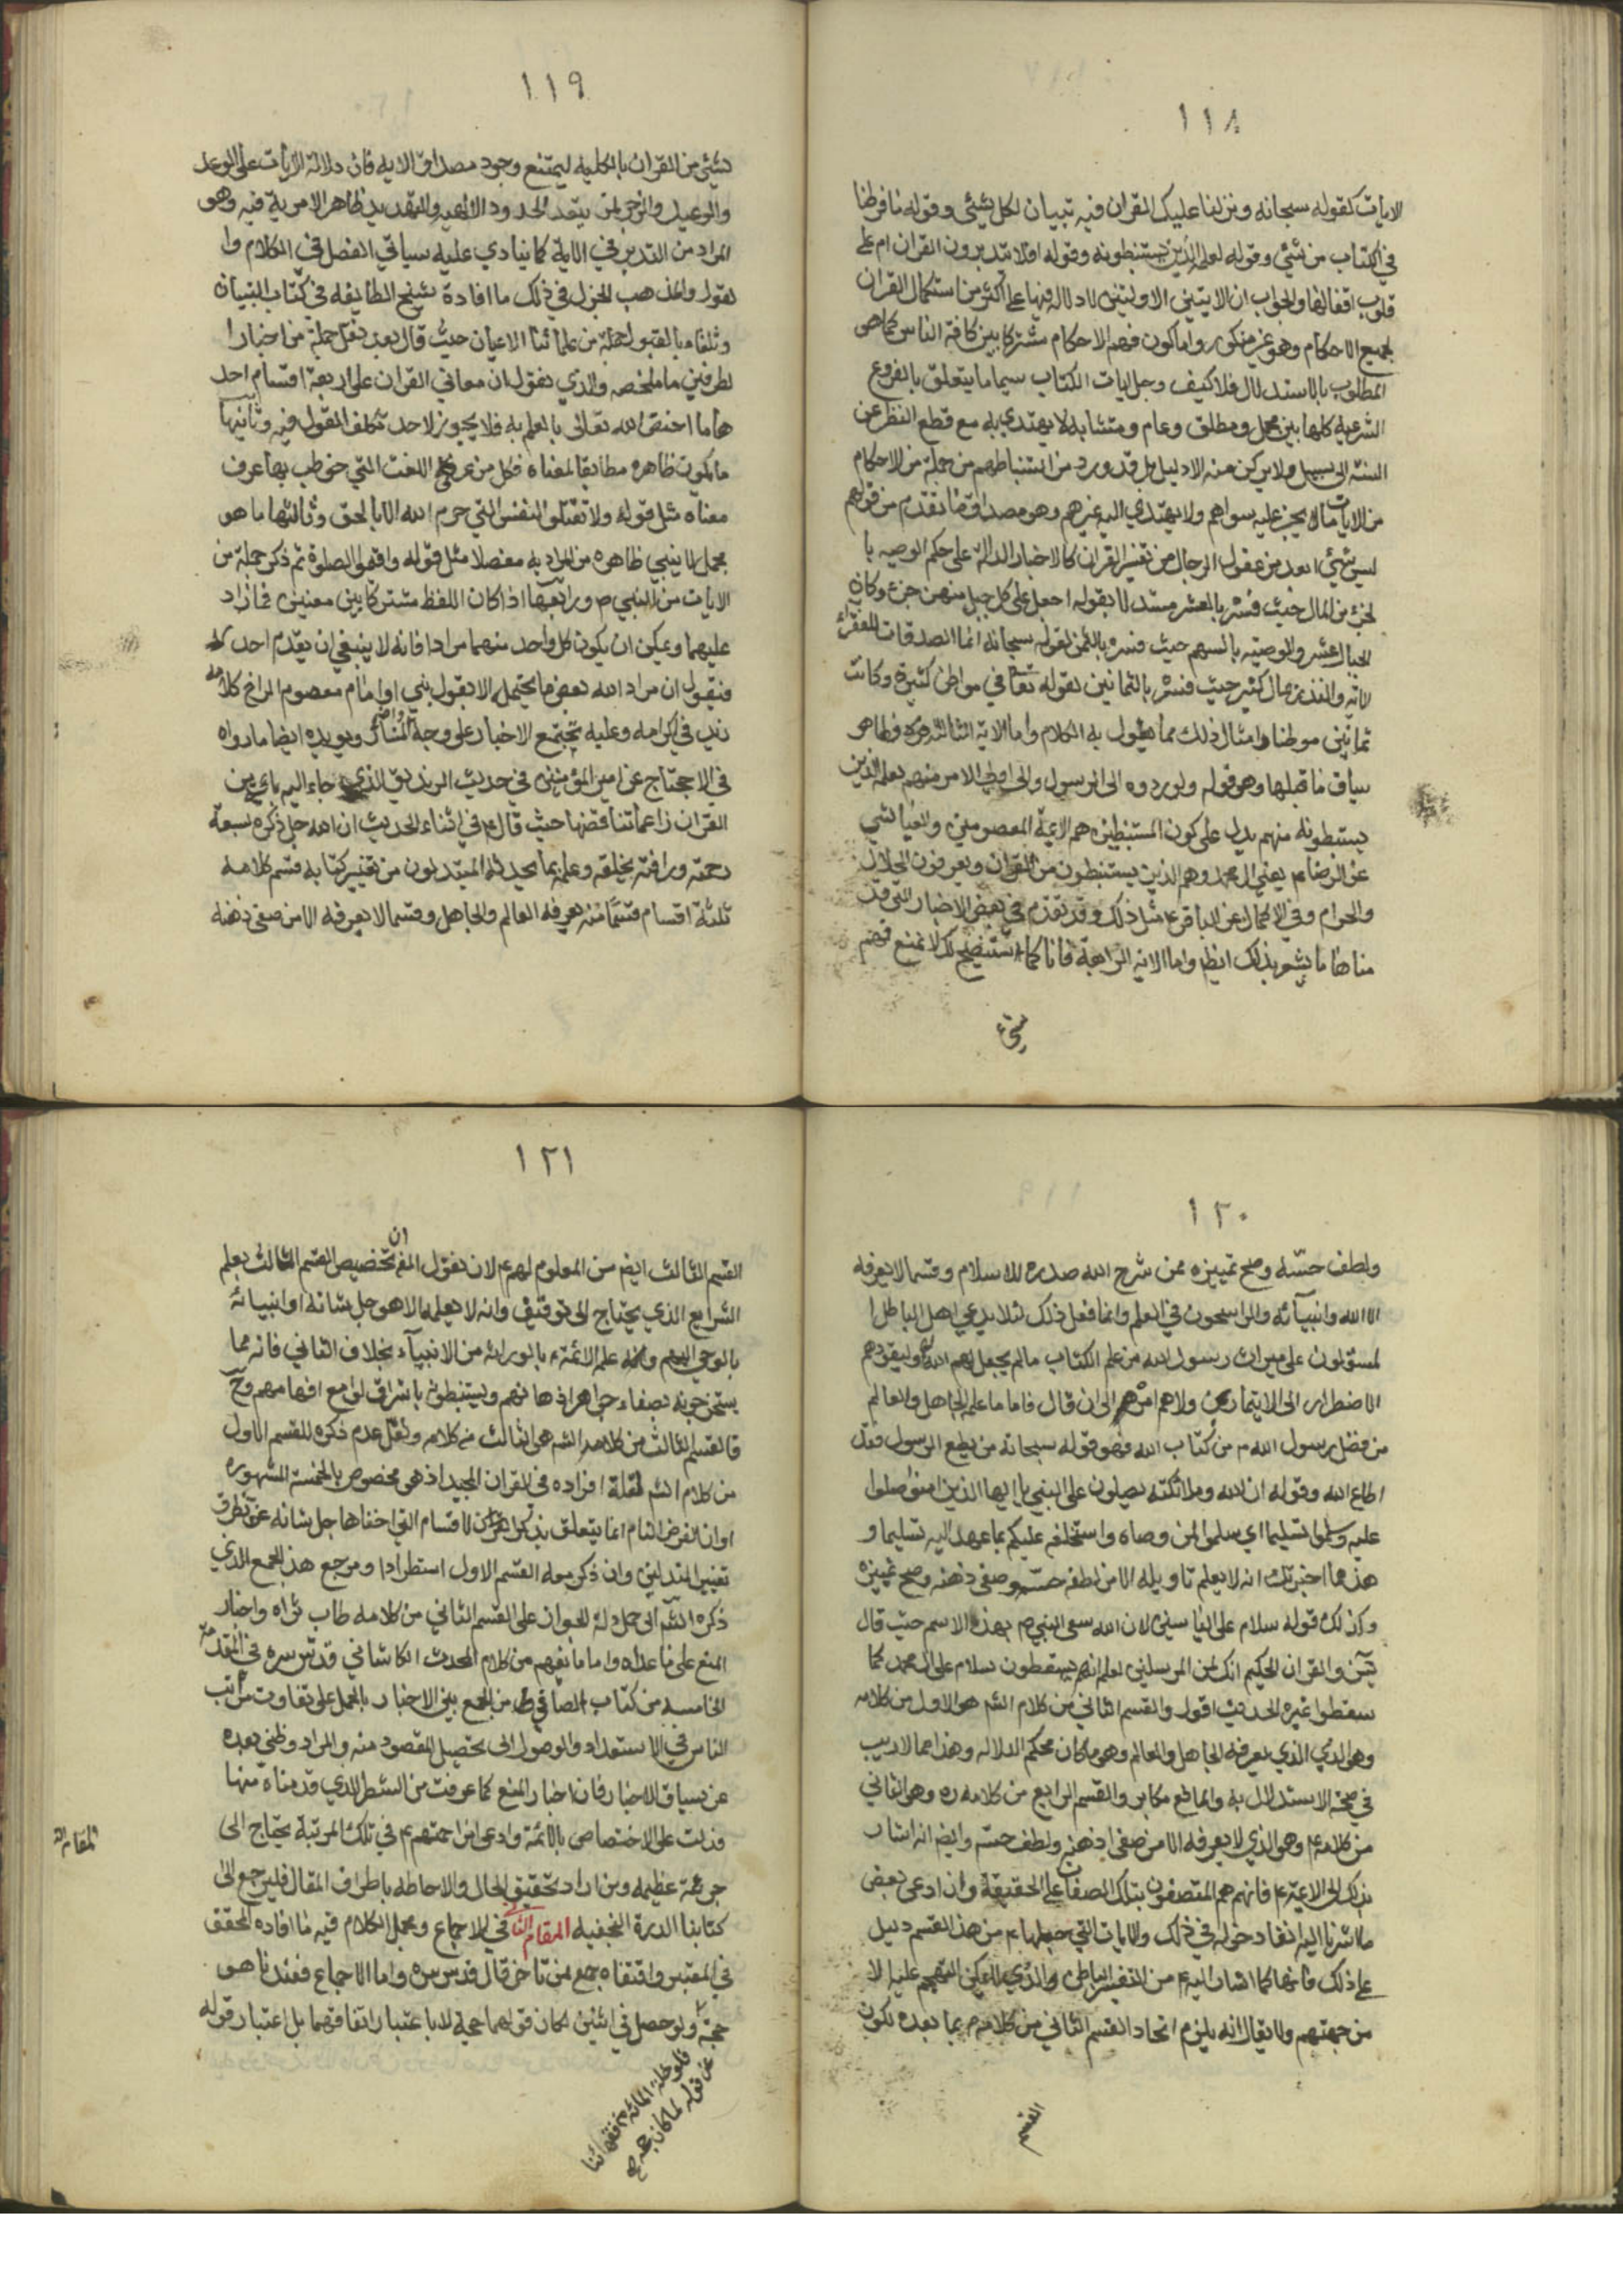 ١١٨
الايات كقوله سبحانه ونزلنا عليك القران فيه تبيان لكل شيئ وقوله ما فرطنا
في الكتاب من شئي وقوله لعلمه الذين يستنبطونه وقوله افلا يتدبرون القران ام على
قلوب اقفالها والجواب ان الايتين الاوليتين لا دلالة فيها على اكثر من استكمال القران
لجميع الاحكام وهو غير منكور واما كون فهم الاحكام مشتركا بين كافة الناس كما هو
المطلوب بالاستدلال فلا كيف وجل ايات الكتاب سيما ما يتعلق بالفروع
الشرعية كلها بين مجمل ومطلق وعام ومتشابه لا يهتدي به مع قطع النظر عن
السنة الى سبيل ولا يركن منه الا دليل بل قد ورد من استنباطهم من جملة من الاحكام
من الايات ما لا يجز عليه سواهم ولا يهتدي اليه غيرهم وهو مصداق ما تقدم من قولهم
ليس شيئ ابعد من عقول الرجال من تفسير القران كالاخبار الدالة على حكم الوصيه با
لجزء من المال حيث فسره بالعشر مستدلا بقوله اجعل على كل جبل منهن جزء وكان
الجبال عشر والوصيته بالسهم حيث فسره بالثمن لقوله سبحانه انما الصدقات للفقراء
الاية والنذر بمال كثير حيث فسره بالثمانين لقوله تعا في مواطن كثيرة وكانت
ثمانين موطنا وامثال ذلك مما يطول به الكلام واما الاية الثالثة فظاهر
سياق ما قبلها وهو قوله ولو ردوه الى الرسول والى اولي الامر منهم لعلمه الذين
يستنبطونه منهم يدل على كون المستنبطين هم الايمة المعصومين وفي العياشي
عن الرضا ع يعني ال محمد وهم الذين يستنبطون من القران ويعرفون الحلال
والحرام وفي الاكمال عن الباقر ع مثل ذلك وقد تقدم في بعض الاخبار التي قد
مناها ما يشعر بذلك ايضا واما الاية الرابعة فانا كما ستتضح لك لا نمنع فهم
شيئ
١١٩
شيئ من القران بالكلية ليمتنع وجود مصداق الايه فان دلالة الايات على الوعد
والوعيد والزجر لمن يتعد الحدود الالهية والتهديد ظاهر لا مرية فيه وهو
المراد من التدبر في الاية كما ينادي عليه سياق الفصل في الكلام وا
لقول والمذهب الجزل في ذلك ما افادة شيخ الطايفه في كتاب التبيان
وتلقاه بالقبول جملة من علمائنا الاعيان حيث قال بعد نقل جملة من اخبار ا
لطرفين ما ملخصه والذي نقول ان معاني القران على اربعة اقسام احد
ها ما اختص الله تعالى بالعلم به فلا يجوز لاحد تكلف القول فيه وثانيها
ما يكون ظاهره مطابقا لمعناه فكل من عرف اللغت التي خوطب بها عرف
معناه مثل قوله ولا تقتلوا النفس التي حرم الله الا بالحق وثالثها ما هو
مجمل لا ينبي ظاهره من المراد به مفصلا مثل قوله واقيموا الصلوة ثم ذكر جملة من
الايات من النبي ص ورابعها اذا كان اللفظ مشتركا بين معنيين فما زاد
عليهما ويمكن ان يكون كل واحد منهما مرادا فانه لا ينبغي ان يقدم احد
فنقول ان مراد الله بعض ما يحتمله الا بقول نبي او امام معصوم الخ كلامه
زيد في اكرامه وعليه تجتمع الاخبار على وجه ويويده ايضا ما رواه
في الاحتجاج عن امير المؤمنين في حديث الزنديق الذي جاء اليه باي من
القران زاعما تناقضها حيث قال ع في اثناء الحديث ان الله جل ذكره لسعة
رحمته ورافته بخلقه وعلمه بما يحدثه المبتدلون من تغيير كتابه قسم كلامه
ثلثة اقسام قسما منه يعرفه العالم والجاهل وقسما لا يعرفه الا من صفى ذهنه
١٢٠
ولطف حسّه وصح تمييزه ممن شرح الله صدره للاسلام وقسما لا يعرفه
الا الله وانبيآئه والراسخون في العلم وانما فعل ذلك لئلا يدعي اهل الباطل ا
لمستولون على ميراث رسول الله من علم الكتاب ما لم يجعل لهم الله وليقودهم
الاضطرار الى الايتمار ولاهم امرهم الى ان قال فاما ما علمه الجاهل والعالم
من فضل رسول الله ص من كتاب الله فهو قوله سبحانه من يطع الرسول فقد
اطاع الله وقوله ان الله وملائكته يصلون على النبي يا ايها الذين امنوا صلوا
عليه وسلموا تسليما اي سلموا لمن وصاه واستخلفه عليكم بما عهد اليه تسليما و
هذا مما اخبرتك انه لا يعلم تاويله الا من لطف حسّه وصفى ذهنه وصح تمييزه
وكذلك قوله سلام على الياسين لان الله سمى النبي ص بهذه الاسم حيث قال
يٓسٓ والقران الحكيم انك لمن المرسلين لعلمه انهم يسقطون سلام على ال محمد كما
سقطوا غيره الحديث اقول والقسم الثاني من كلام الشيخ هو الاول من كلامه
وهو الذي الذي يعرفه الجاهل والعالم وهو ما كان محكم الدلاله وهذا مما لا ريب
في صحة الاستدلال به والمانع مكابر والقسم الرابع من كلامه ره وهو الثاني
من كلامه ع وهو الذي لا يعرفه الا من صفى ذهنه ولطف حسّه وايضا انه اشار
بذلك الى الائمة ع فانهم هم المتصفون بتلك الصفات على الحقيقة وان ادعى بعض
ما اشرنا اليه انفا دخوله في ذلك والايات التي جعلها ع من هذا القسم دليل
على ذلك فانها كما اشار اليه ع من التفسير الباطن والذي لا يمكن التهجم عليه الا
من جهتهم ولا يقال انه يلزم اتحاد القسم الثاني من كلامه ع بما بعده لكون
القسم
١٢١
القسم الثالث ايضا من المعلوم لهم ع لانا نقول ان تخصيص القسم الثالث بعلم
الشرايع الذي يحتاج الى توقيف وانه لا يعلمه الا هو جل شانه او انبيائه
بالوحي اليهم علم الائمة ع بالوراثه من الانبيآء بخلاف الثاني فانه مما
يستخرجونه بصفاء جواهر اذهانهم ويستنبطونه باشراق لوامع افهامهم وح
فالقسم الثالث من كلام الشيخ هو الثالث من كلامه ولعل عدم ذكره للقسم الاول
من كلام الشيخ لقلة افراده في القران المجيد اذ هو مخصوص بالخمسة المشهوره
او ان الغرض التام انما يتعلق بذكر الاقسام التي اخفاها جل شانه عن تطرق
تغيير المبتدلين وان ذكر معه القسم الاول استطرادا ومرجع هذا الجمع الذي
ذكره الشيخ الى حمل ادلة الجواز على القسم الثاني من كلامه طاب ثراه واخبار
المنع على ما عداه واما ما يفهم من كلام المحدث الكاشاني قدس سره في المقدمة
الخامسة من كتاب الصافي من الجمع بين الاخبار بالحمل على تفاوت مراتب
الناس في الاستعداد والوصول الى تحصيل المقصود منه والمراد وظني بعده
عن سياق الاخبار فان اخبار المنع كما عرفت من الشطر الذي قدمناه منها
قد دلت على الاختصاص بالائمة وادعى مزاحمتهم ع في تلك المرتبة يحتاج الى
جرئة عظيمه ومن اراد تحقيق الحال والاحاطه باطراف المقال فليرجع الى
كتابنا الدرة النجفيه المقام الثاني في الاجماع ومجمل الكلام فيه ما افاده المحقق
في المعتبر واقتفاه جمع ممن تاخر قال قدس سره واما الاجماع فعندنا هو
حجة ولو حصل في اثنين لكان قولهما حجة لا باعتبار اتفاقهما بل اعتبار قوله
فلو خلا المائة من فقهائنا
عن قوله لما كان حجة
المقام الثا